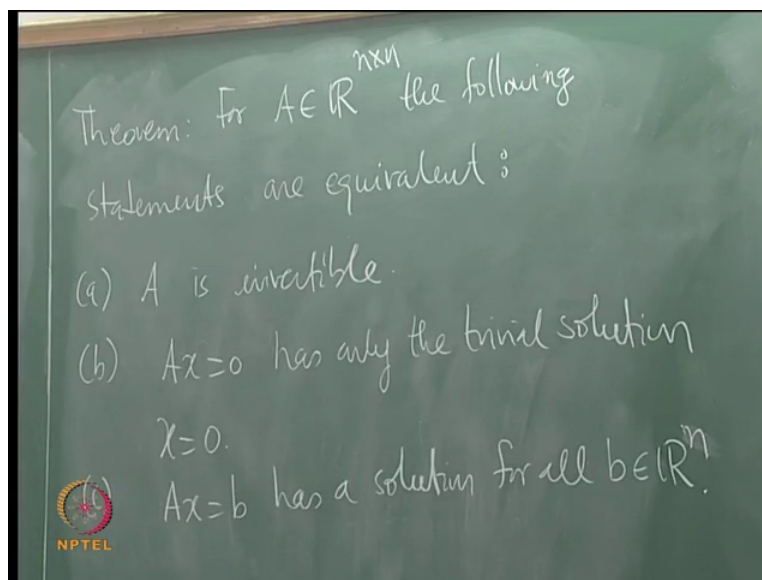 Theorem: For A ∈ ℝ^{n×n} the following
statements are equivalent:
(a) A is invertible.
(b) Ax=0 has only the trivial solution
x=0.
Ax=b has a solution for all b∈ℝ^n.
NPTEL